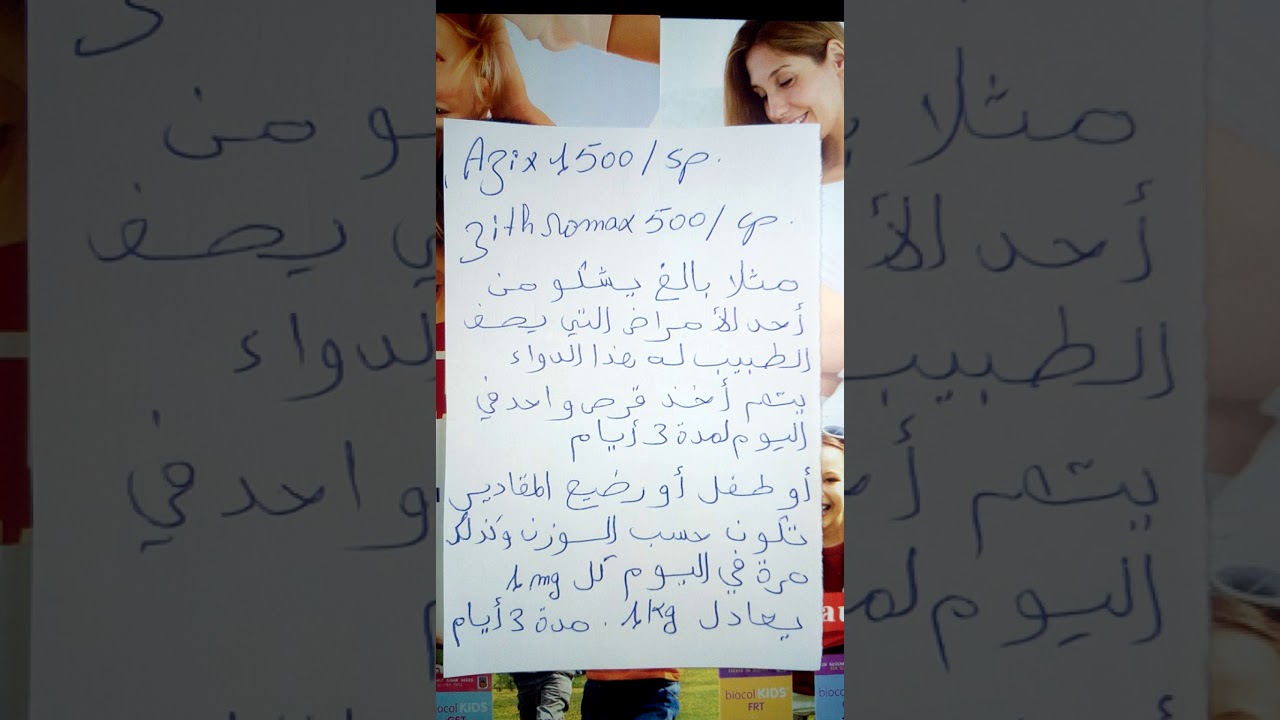 Azix 1500/sp.
zithromax 500/cp.
مثلا بالغ يشكو من
أحد الأمراض التي يصف
الطبيب له هذا الدواء
يتم أخذ قرص واحد في
اليوم لمدة 3 أيام
أو طفل أو رضيع المقادير
تكون حسب الوزن وكذلك
مرة في اليوم كل 1mg
يعادل 1kg . مدة 3 أيام
biocol KIDS
FRT
biocol KIDS